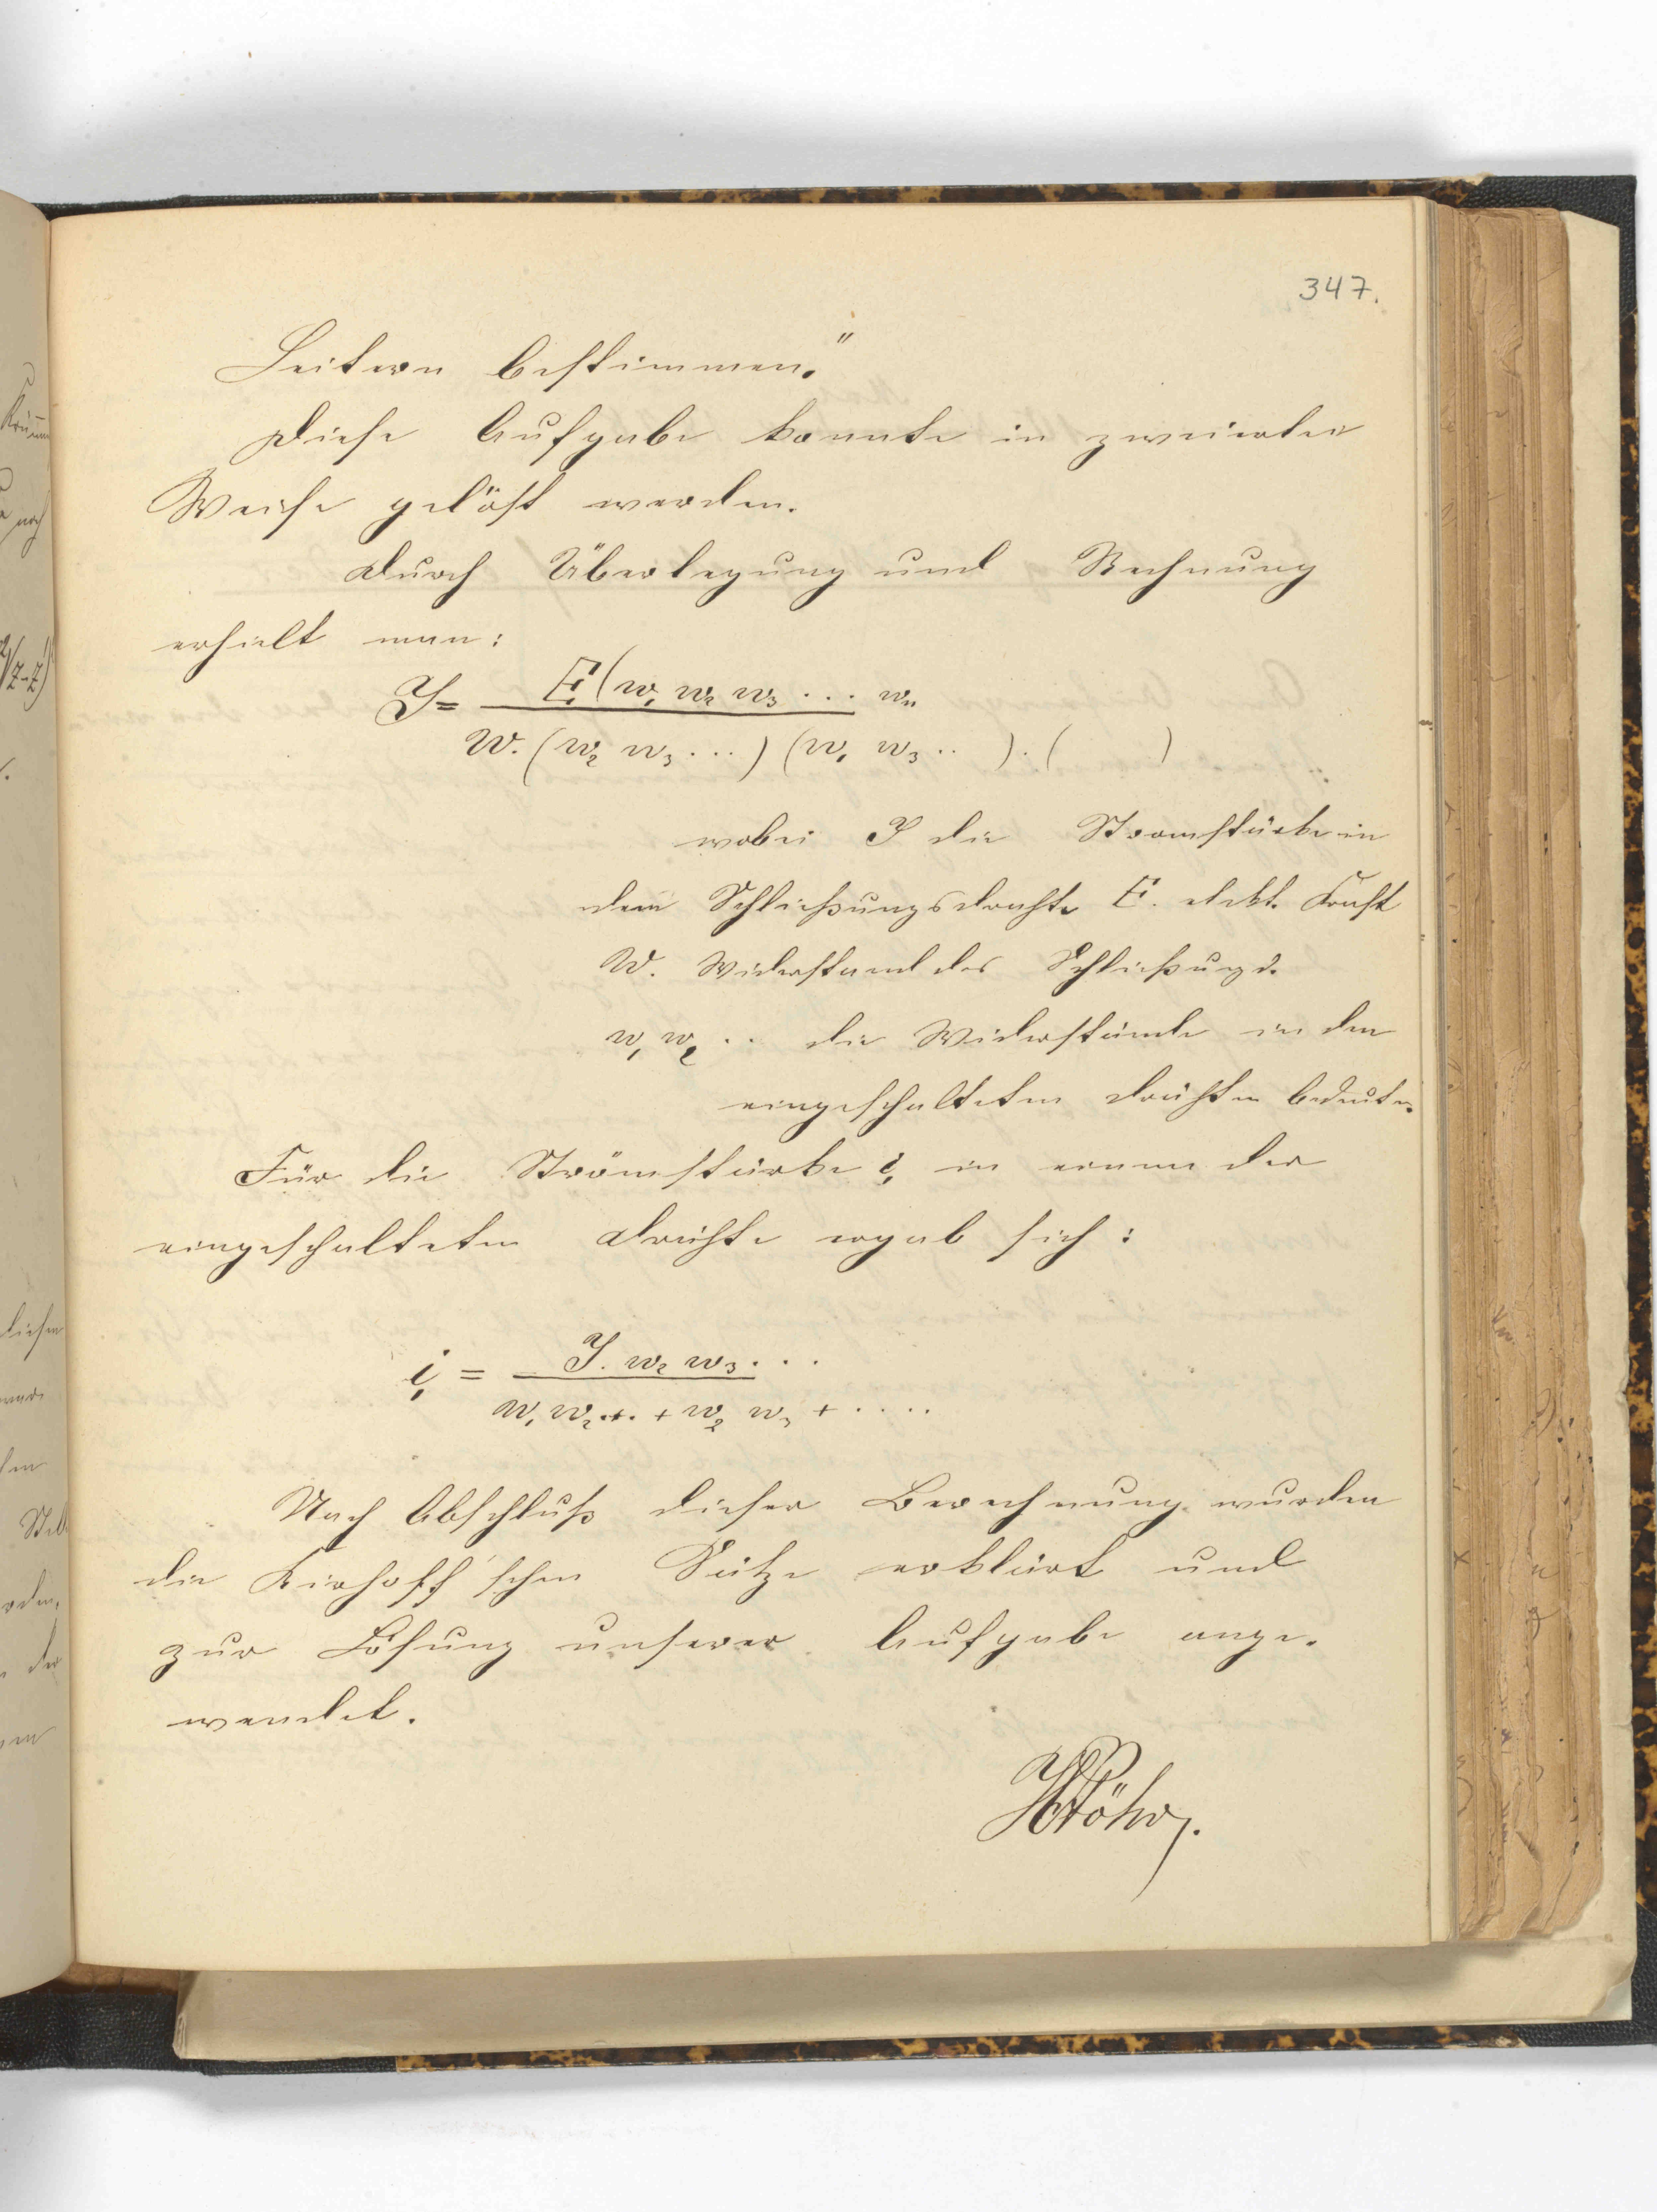 347.
Leitern bestimmen."
Diese Aufgabe konnte in zweierlei
Weise gelöst werden.
Durch Überlegung und Rechnung
erhielt man:
J = E (w₁ w₂ w₃ ... wₙ
W. (w₂ w₃ ...) (w₁ w₃ .. ) . ( )
wobei J die Stromstärke in
dem Schließungsdrahte E. elekt. Kraft
W. Widerstand des Schließungsd.
w₁ w₂ .. die Widerstände in den
eingeschalteten Drähten bedeuten.
Für die Strömstärke i₁ in einem der
eingeschalteten Drähte ergab sich:
i₁ = J. w₂ w₃ ...
w₁ w₂ .+. + w₂ w₃ + ....
Nach Abschluß dieser Berechnung wurden
die Kirhoff'schen Sätze erklärt und
zur Lösung unserer Aufgabe ange-
wendet.